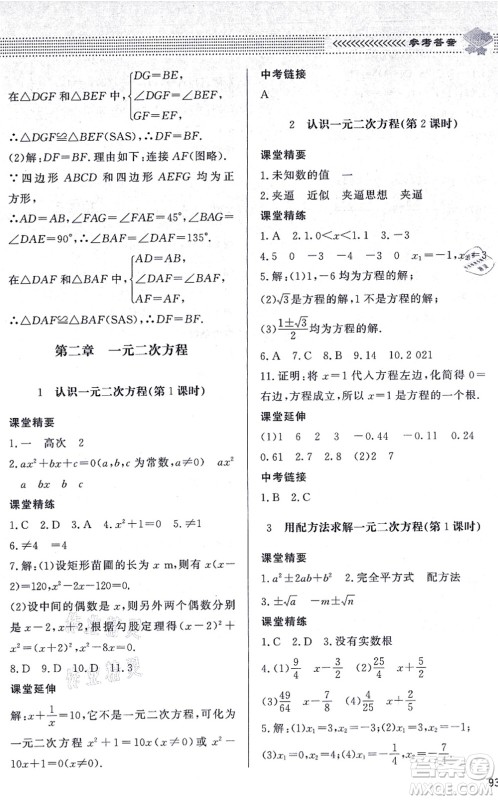 参考答案
DG=BE,
在△DGF 和△BEF 中,∠DGF=∠BEF,
GF=EF,
∴△DGF≌△BEF(SAS).∴DF=BF.
(2)解:DF=BF.理由如下:连接 AF(图略).
∵四边形 ABCD 和四边形 AEFG 均为正
方形,
∴AD=AB,∠FAG=∠FAE=45°,∠BAG=
∠DAE=90°,∴∠DAF=∠BAF.
AD=AB,
在△DAF 和△BAF 中,∠DAF=∠BAF,
AF=AF,
∴△DAF≌△BAF(SAS),∴DF=BF.
第二章 一元二次方程
1 认识一元二次方程(第 1 课时)
课堂精要
1.一 高次 2
2.ax²+bx+c=0(a,b,c 为常数,a≠0) ax²
a bx b c
课堂精练
1.C 2.D 3.A 4.x²+1=0 5.D
6.①④
7.解:(1)设矩形苗圃的长为 x m,则有 x(x-
2)=120,x²-2x-120=0.
(2)设中间的偶数是 x,则另外两个偶数分别
是 x-2,x+2,根据勾股定理得(x-2)²+x²=
(x+2)²,x²-8x=0.
8.D 9.D 10.D 11.3
课堂延伸
解:x+1/x=10,它不是一元二次方程,可化为
一元二次方程 x²+1=10x(x≠0),即 x²-
10x+1=0(x≠0).
中考链接
A
2 认识一元二次方程(第 2 课时)
课堂精要
1.未知数的值 一
2.夹逼 近似 夹逼思想 夹逼
课堂精练
1.A 2.1.0<x<1.1 3.B
4.5 0 -3 -4 -3 0 x₁=-1,x₂=3
5.解:(1)1,-6 均为方程的解;
(2)√3 是方程的解,1 不是方程的解;
(3)(1±√3)/2 均为方程的解.
6.A 7.D 8.D 9.x=1 10.2 021
11.证明:将 x=1 代入方程左边,化简得左边=
0=右边,因此 x=1 是方程的一个根.
课堂延伸
(1)2 1 0.44 -0.11 -0.44
0.61 1.8 (2)2 7
中考链接
1.B 2.C
3 用配方法求解一元二次方程(第 1 课时)
课堂精要
1.a²±2ab+b² 2.完全平方式 配方法
3.±√a -m±√a 没有实数根
课堂精练
1.(1)9/4 3/2 (2)25/4 5/2 2.B
3.49/64 x=-9/8 4.25/16 x-5/4
5.解:(1)x₁=3,x₂=-1;(2)x₁=2,x₂=
0;(3)x₁=0,x₂=4;(4)x₁=-1/4,x₂=-7/4.
93
答案圈